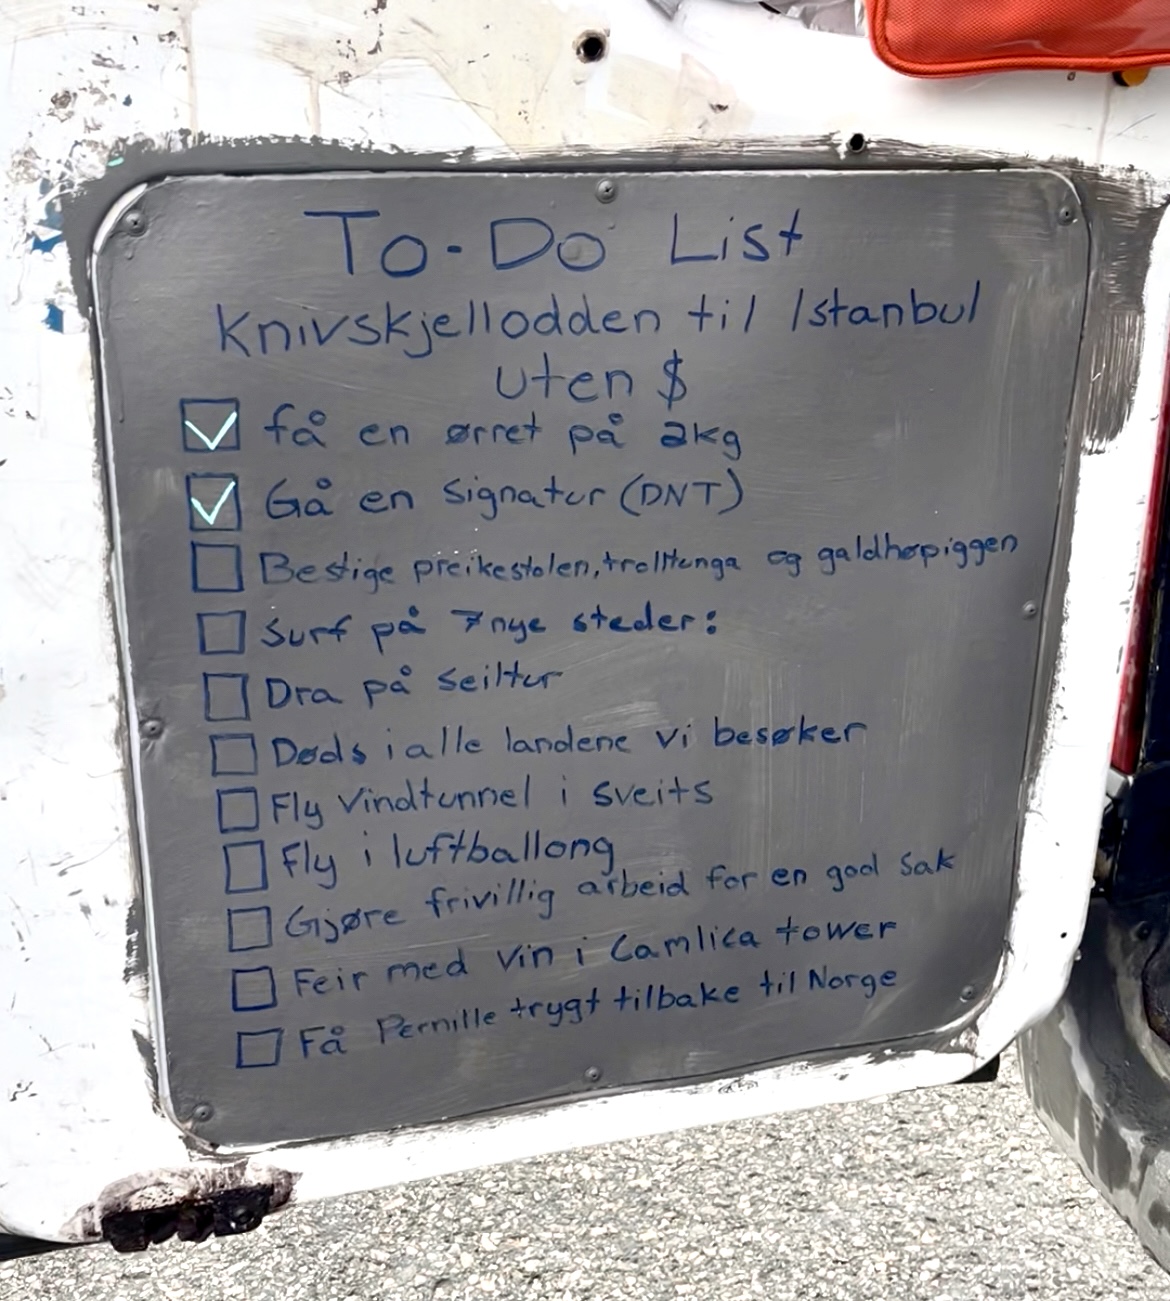 To-Do List
Knivskjellodden til Istanbul
uten $
få en ørret på 2kg
Gå en Signatur (DNT)
Bestige preikestolen, trolltunga og galdhøpiggen
Surf på 7 nye steder:
Dra på seiltur
Døds i alle landene vi besøker
Fly vindtunnel i sveits
Fly i luftballong
Gjøre frivillig arbeid for en god sak
Feir med vin i Camlica tower
Få Pernille trygt tilbake til Norge